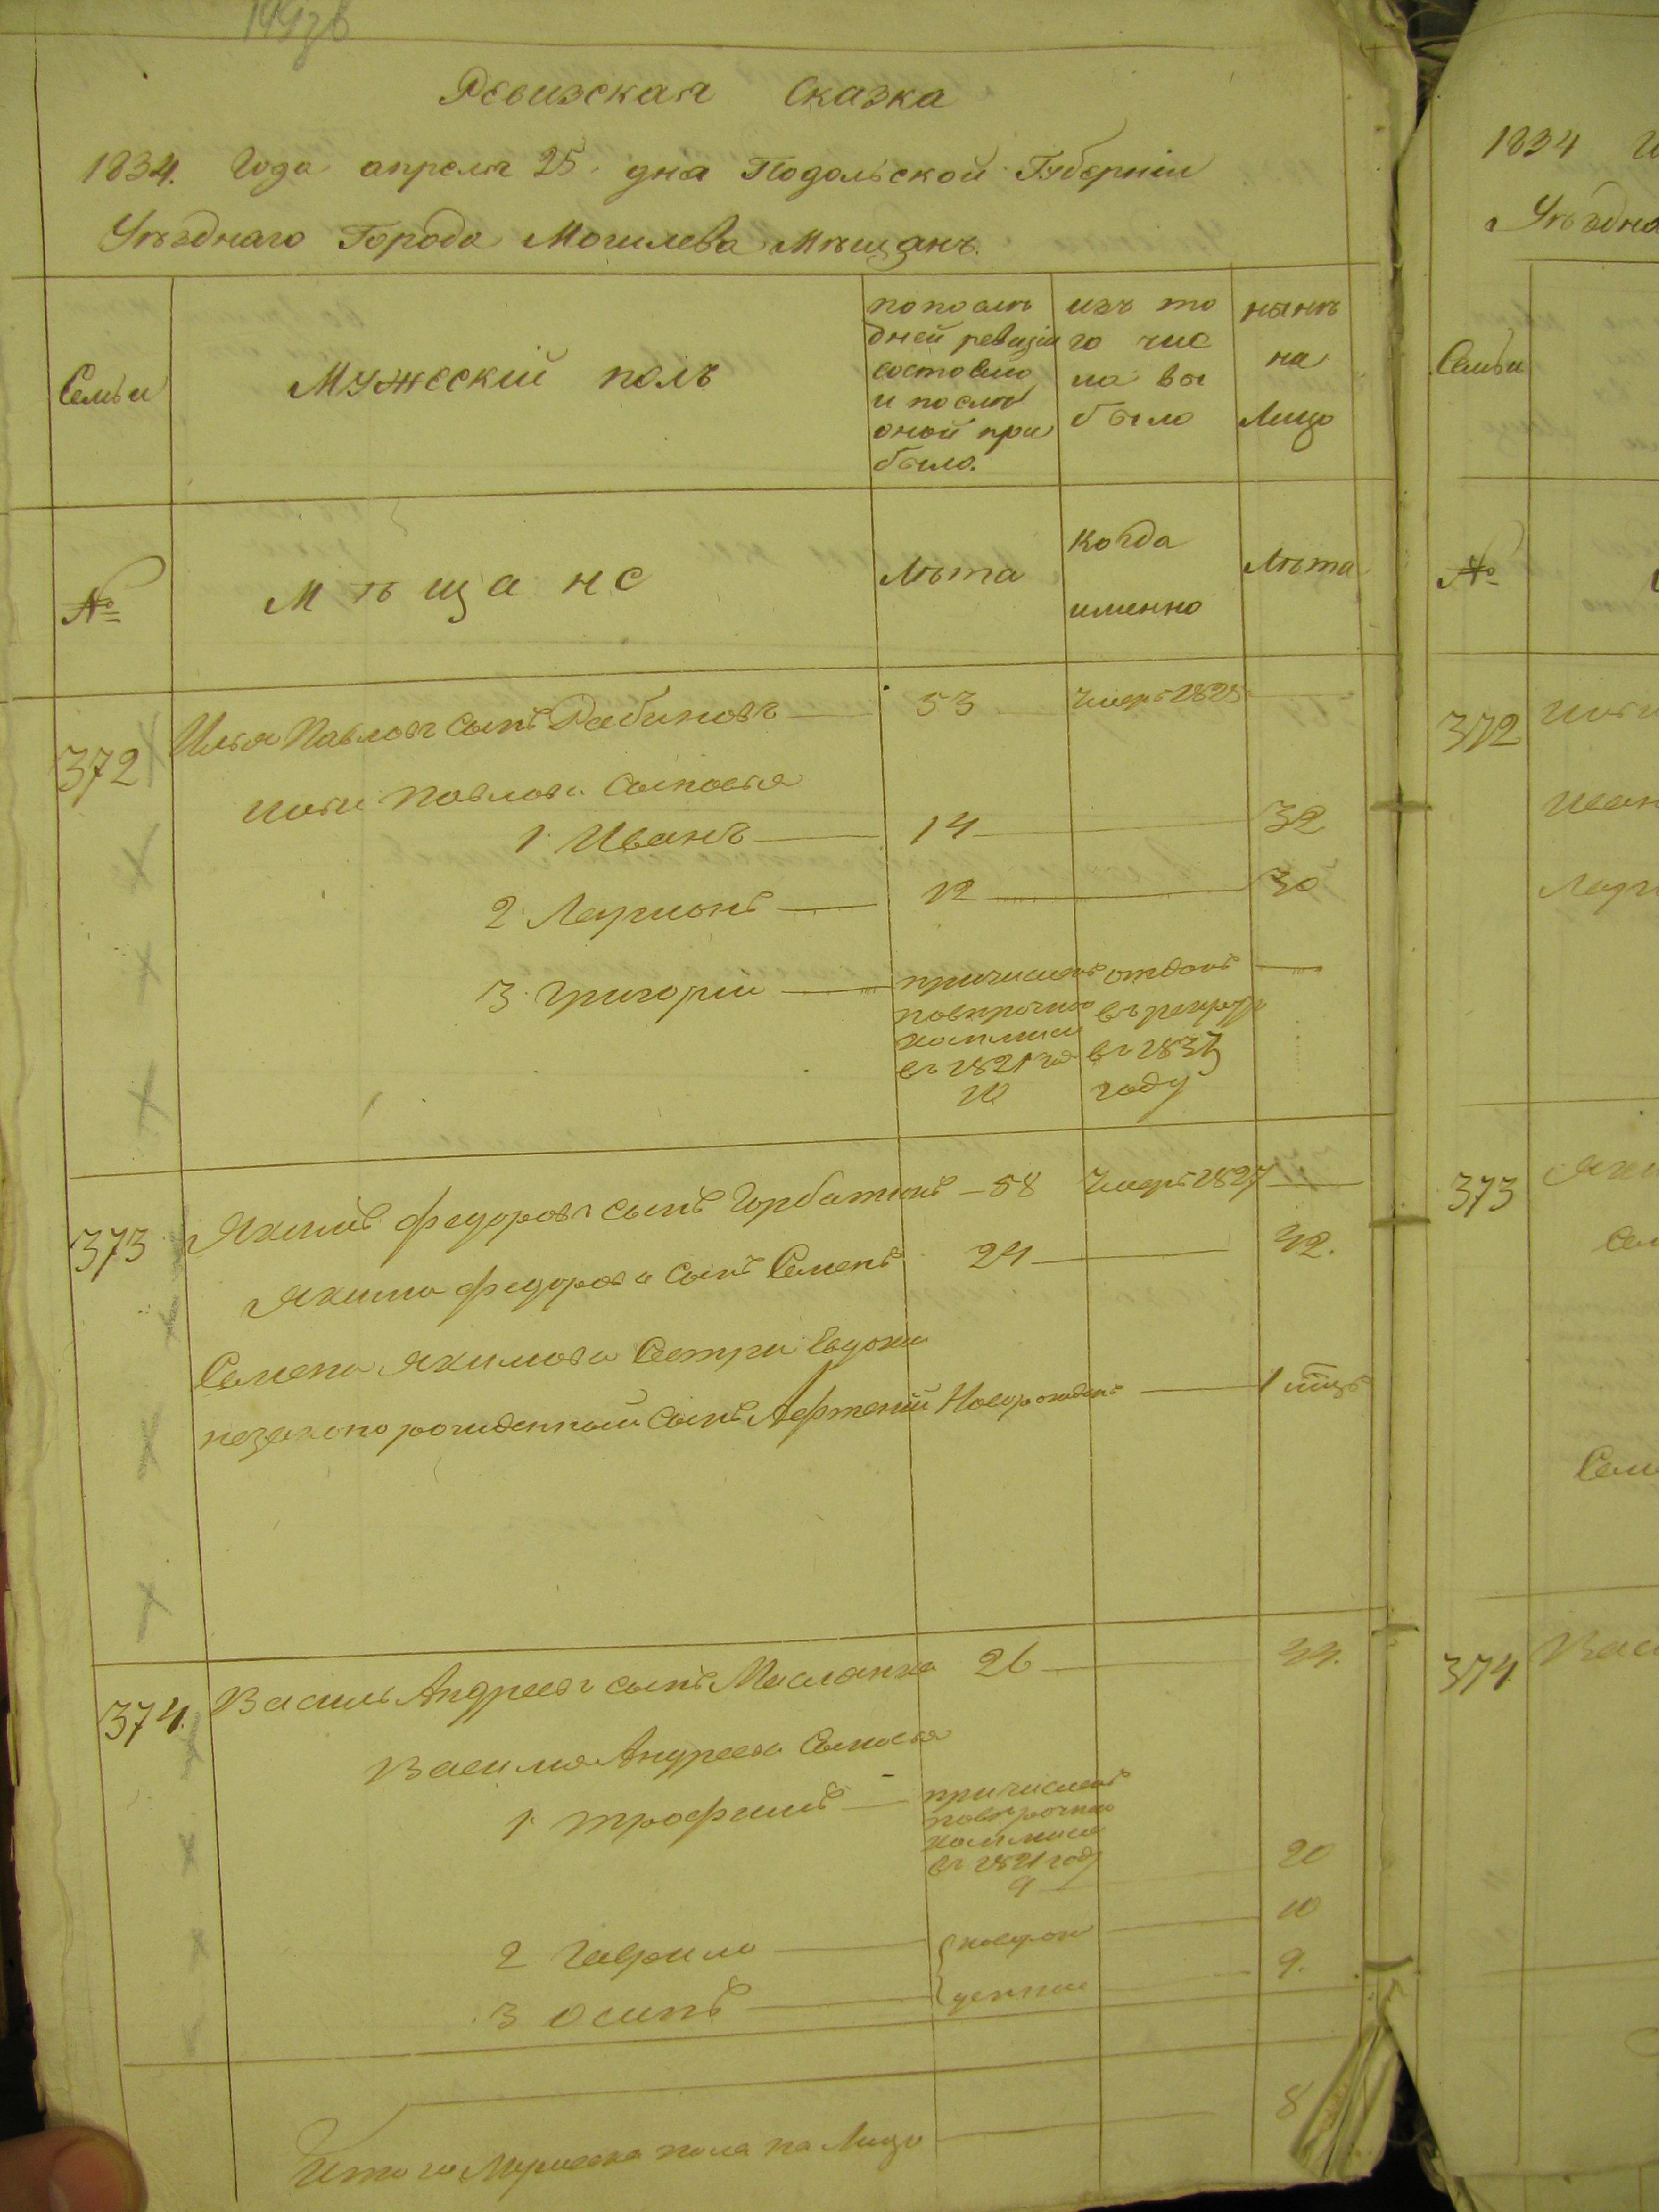 Ревизская Сказка
1834. Года апреля 25 дня Подольской Губернiи
Уѣзднаго Города Могилева Мѣщанъ.
Семьи
Мужескiй полъ
по послѣ
дней ревизiи
состояло
и послѣ
оной при
было.
изъ то
го чис
ла вы
было
нынѣ
на
Лицо
№
Мѣщане
Лѣта
Когда
именно
Лѣта
372
Илья Павловъ сынъ Рабиновъ 53 Умеръ 1828
Ильи Павлова Сыновья
1 Иванъ 14 32
2 Ларионъ 12 30
3 Григорiй
причисленъ
повѣрочною
въ 1821 год
10
отданъ
въ рекруты
въ
году
373 Якимъ Федоровъ сынъ Горбатюкъ 58 Умеръ 1827
Якима Федорова сынъ Семенъ 24 42.
Семена Якимова Сестри Евдокiи
незаконо рожденный сынъ Новорожденъ 1
374. Василь Андреевъ сынъ Маслянка 26 44.
Василя Андреева Сыновья
1 Трофимъ
причисленъ
повѣрочною
въ 1821 году
9 20
2 Гаврило новорож 10
3 Осипъ денные 9.
Итого Мужеска пола на Лицо 8
1834
Уѣздна
Семьи
№
372
Ильи
Иван
Лари
373
Яки
Сем
Семе
374
Васи